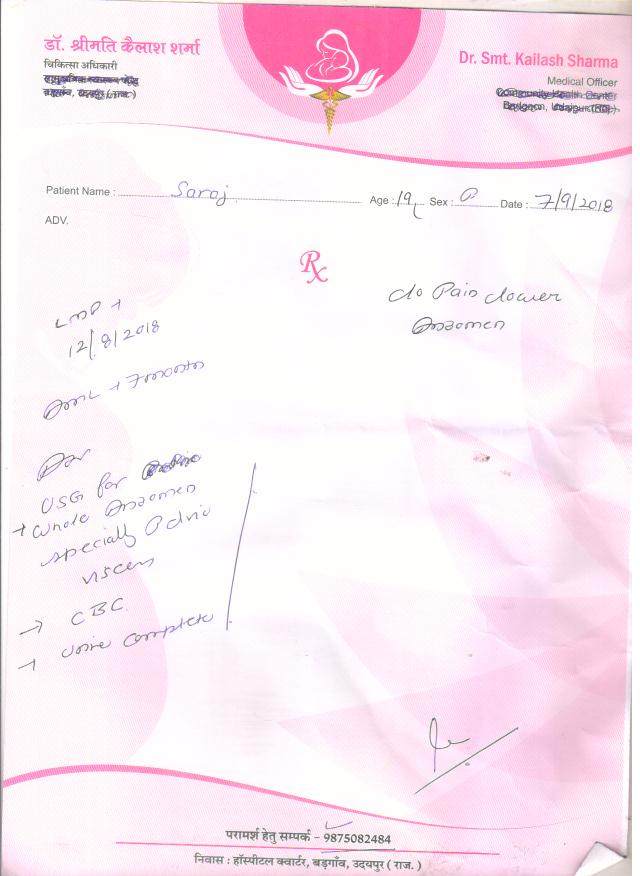 डॉ. श्रीमति कैलाश शर्मा
चिकित्सा अधिकारी
सामुदायिक स्वास्थ्य केन्द्र
बड़गाँव, उदयपुर (राज.)
Dr. Smt. Kailash Sharma
Medical Officer
Community Health Center
Badgaon, Udaipur (Raj.)
Patient Name : Saroj Age : 19 Sex : Date : 7/9/2018
ADV.
Rx
c/o Pain lower
Abdomen
LMP +
12/8/2018
+ 7 month
USG for
→ Whole Abdomen
specially Pelvic
viscera
→ CBC.
→ Urine complete
परामर्श हेतु सम्पर्क - 9875082484
निवास : हॉस्पीटल क्वार्टर, बड़गाँव, उदयपुर ( राज. )